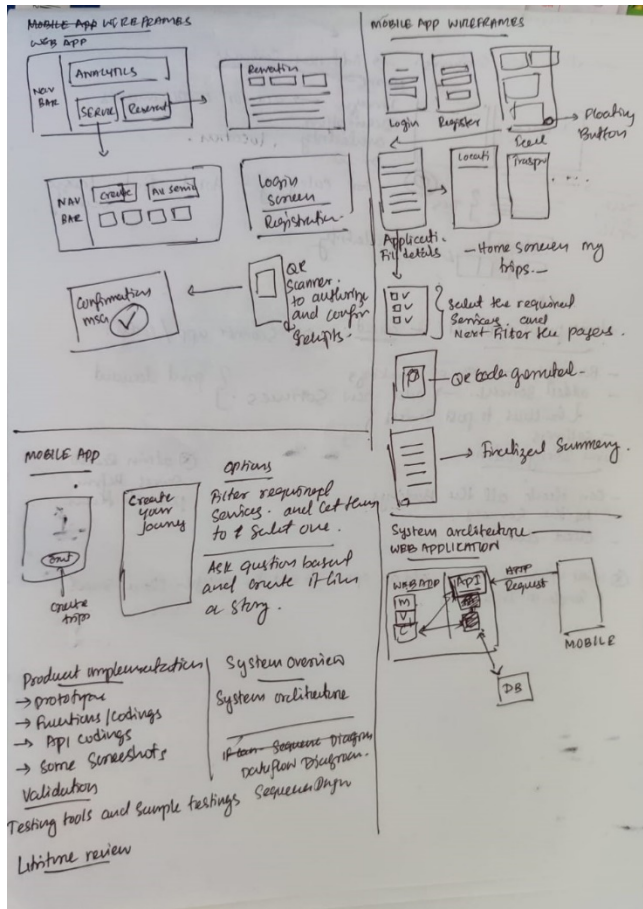 MOBILE APP WIREFRAMES
WEB APP
NAV
BAR
ANALYTICS
SERVICE
Reservat
Reservation
NAV
BAR
Create
Av servic
Login
Screen
Registration
Confirmation
msg
QR
Scanner.
to authorize
and confirm
MOBILE APP WIREFRAMES
Login
Register
Floating
Button
Locati
Transpo
Applicati.
Fill details
- Home Screen my
trips.-
Select the required
Services and
Next Filter the pages.
QR code generated.
Finalized Summary.
MOBILE APP
Create
trips
Create
your
journey
Options
Filter required
Services. and Let them
to select one.
Ask question based
and create it like
a Story.
System architecture
WEB APPLICATION
WEB APP
M
V
C
API
HTTP
Request
MOBILE
DB
Product implementation
→ prototype
→ Functions/codings
→ Api codings
→ Some Screeshots
Validation
Testing tools and Sample testings
System overview
System architecture
Sequence Diagram
Dataflow Diagram.